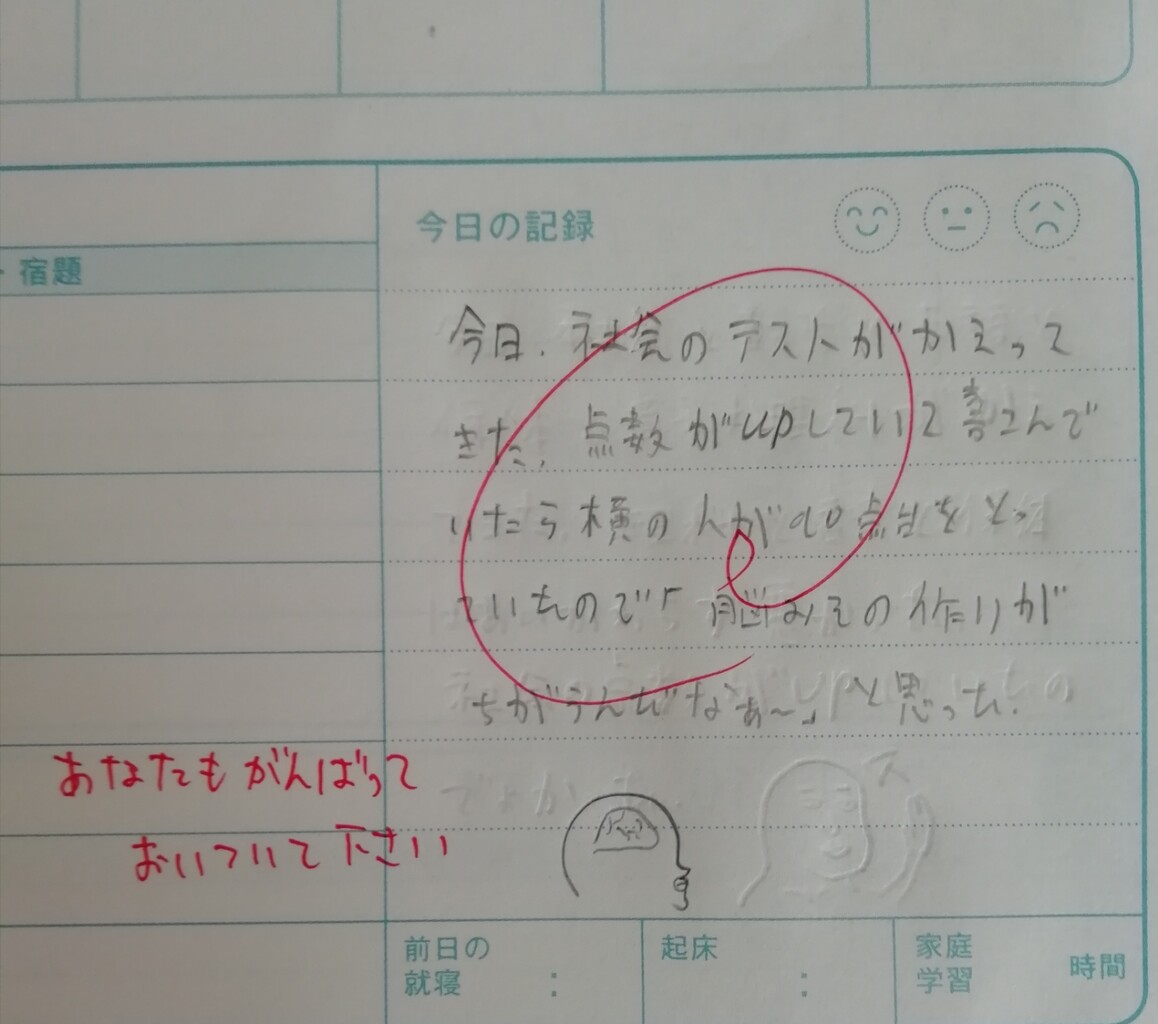 今日の記録
・宿題
今日、社会のテストがかえって
きた、点数がupしていて喜こんで
いたら横の人が90点台をとっ
ていたので「脳みその作りが
ちがうんだなぁ〜」と思った.
あなたもがんばって
おいついて下さい
前日の
就寝 :
起床 :
家庭
学習 時間